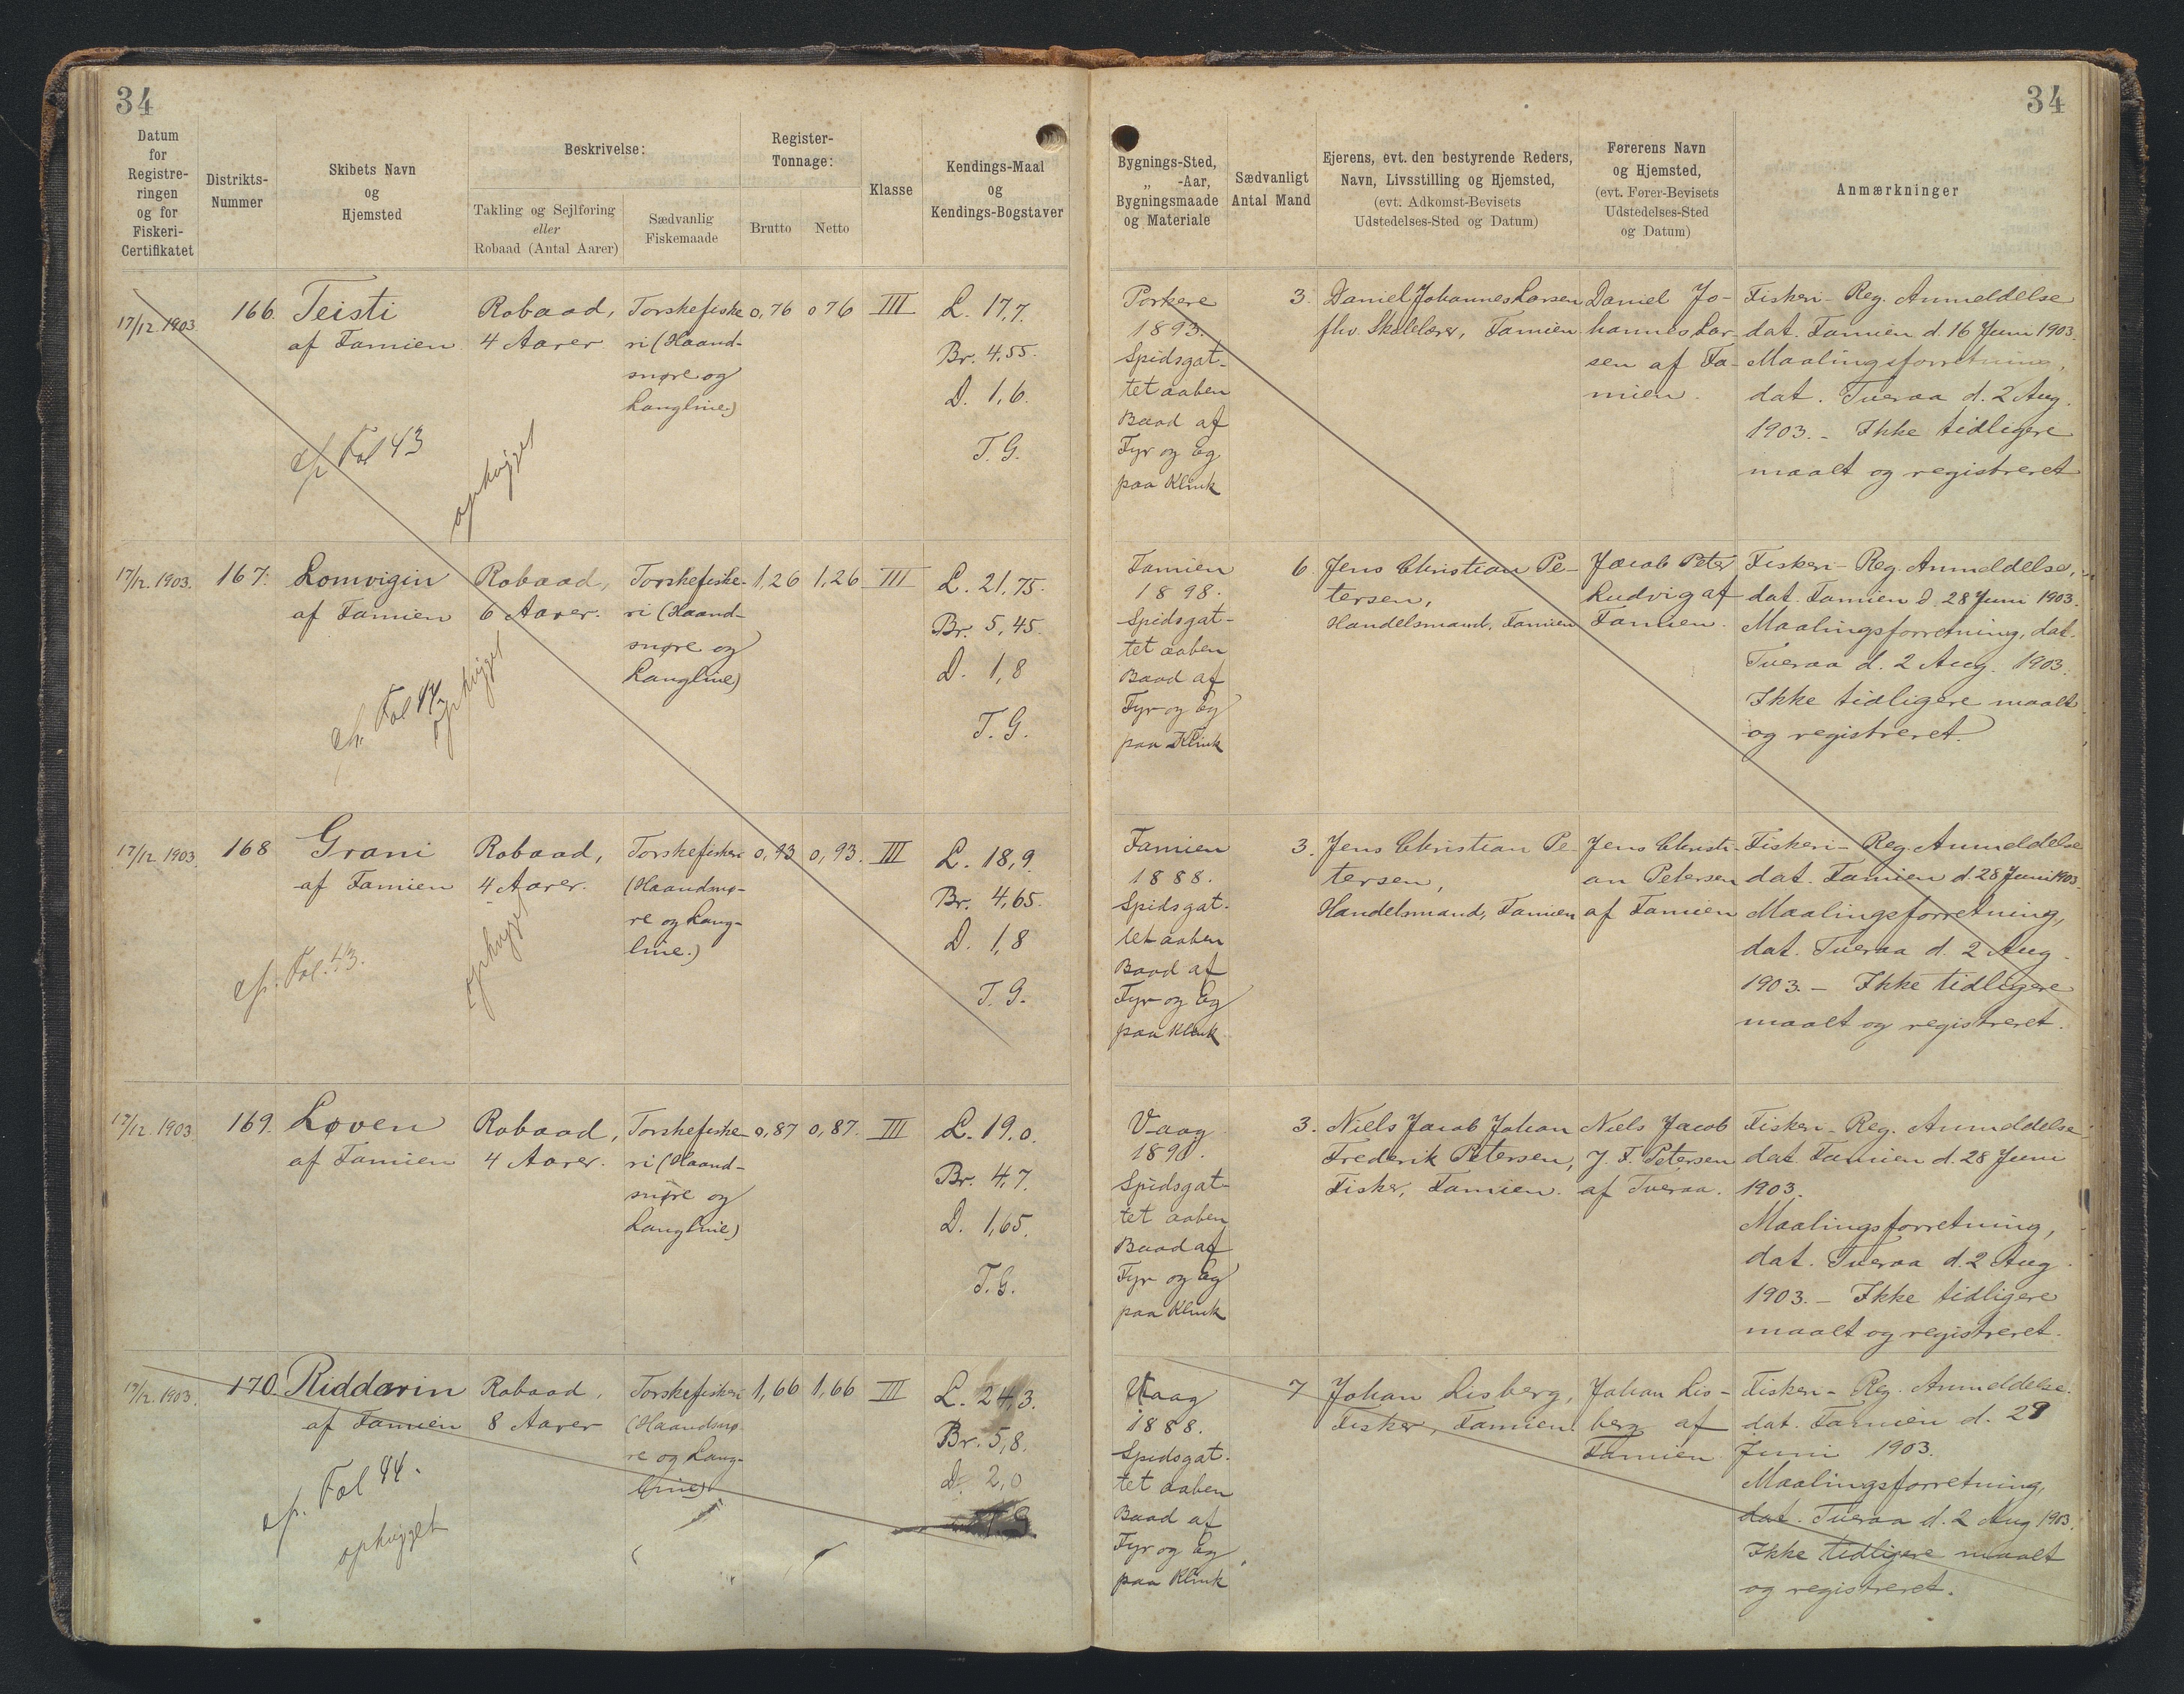 34
34
Datum
for
Registre-
ringen
og for
Fiskeri-
Certifikatet
Distrikts-
Nummer
Skibets Navn
og
Hjemsted
Beskrivelse:
Takling og Sejlføring
eller
Robaad (Antal Aarer)
Sædvanlig
Fiskemaade
Register-
Tonnage:
Brutto
Netto
Klasse
Kendings-Maal
og
Kendings-Bogstaver
Bygnings-Sted,
„ -Aar,
Bygningsmaade
og Materiale
Sædvanligt
Antal Mand
Ejerens, evt. den bestyrende Reders,
Navn, Livsstilling og Hjemsted,
(evt. Adkomst-Bevisets
Udstedelses-Sted og Datum)
Førerens Navn
og Hjemsted,
(evt. Fører-Bevisets
Udstedelses-Sted
og Datum)
Anmærkninger
17/12 1903
166.
Teisti
af Famien
Robaad,
4 Aarer
Torskefiske
ri (Haand-
snøre og
Langline)
0,76
0 76
III
L. 17,7.
Br. 4,55.
D. 1,6.
T. G.
cfr Fol 43
ophugget
Porkere
1893.
Spidsgat-
tet aaben
Baad af
Fyr og Eg
paa Klink
3.
Daniel Johannes Larsen
fhv. Skolelærer, Famien
Daniel Jo-
hannes Lar-
sen af Fa-
mien.
Fiskeri- Reg. Anmeldelse
dat. Famien d. 16 Juni 1903.
Maalingsforretning,
dat. Tveraa d. 2 Aug.
1903. - Ikke tidligere
maalt og registreret
17/12. 1903.
167.
Lomvigin
af Famien
Robaad,
6 Aarer.
Torskefiske-
ri (Haand-
snøre og
Langline)
1,26
1,26
III
L. 21,75.
Br. 5,45.
D. 1,8
T. G.
cfr. Fol 44
ophugget
Famien
1898.
Spidsgat-
tet aaben
Baad af
Fyr og Eg
paa Klink
6
Jens Christian Pe-
tersen,
Handelsmand, Famien
Jacob Peter
Ludvig af
Famien.
Fiskeri- Reg. Anmeldelse,
dat. Famien d. 28 Juni 1903.
Maalingsforretning, dat.
Tveraa d. 2 Aug. 1903.
Ikke tidligere maalt
og registreret.
17/12 1903
168
Grani
af Famien
Robaad,
4 Aarer.
Torskefiskeri
(Haandsnø-
re og Lang-
line.)
0,93
0,93.
III
L. 18,9.
Br. 4,65.
D. 1,8
T. G.
cfr. Fol. 43.
ophugget
Famien
1888.
Spidsgat-
tet aaben
Baad af
Fyr og Eg
paa Klink
3.
Jens Christian Pe-
tersen,
Handelsmand, Famien
Jens Christi-
an Petersen
af Famien
Fiskeri- Reg. Anmeldelse
dat. Famien d. 28 Juni 1903.
Maalingsforretning,
dat. Tveraa d. 2 Aug.
1903. - Ikke tidligere
maalt og registreret.
17/12. 1903
169.
Løven
af Famien
Robaad,
4 Aarer.
Torskefiske-
ri (Haand-
snøre og
Langline)
0,87
0,87.
III
L. 19.0.
Br. 4,7.
D. 1,65.
T. G.
Vaag
1890.
Spidsgat-
tet aaben
Baad af
Fyr og Eg
paa Klink
3.
Niels Jacob Johan
Frederik Petersen,
Fisker, Famien.
Niels Jacob
J. F. Petersen
af Tveraa.
Fiskeri- Reg. Anmeldelse
dat. Famien d. 28 Juni
1903.
Maalingsforretning,
dat. Tveraa d. 2 Aug.
1903. - Ikke tidligere
maalt og registreret.
17/12. 1903.
170
Riddarin
af Famien
Robaad,
8 Aarer
Torskefiskeri
(Haandsnø-
re og Lang-
line)
1,66
1,66
III
L. 24,3.
Br. 5,8.
D. 2,0
T G
cfr. Fol 44.
ophugget
Vaag
1888.
Spidsgat-
tet aaben
Baad af
Fyr og Eg
paa Klink
7
Johan Lisberg,
Fisker, Famien.
Johan Lis-
berg af
Famien
Fiskeri- Reg. Anmeldelse.
dat. Famien d. 29
Juni 1903.
Maalingsforretning,
dat. Tveraa d. 2 Aug 1903.
Ikke tidligere maalt
og registreret.